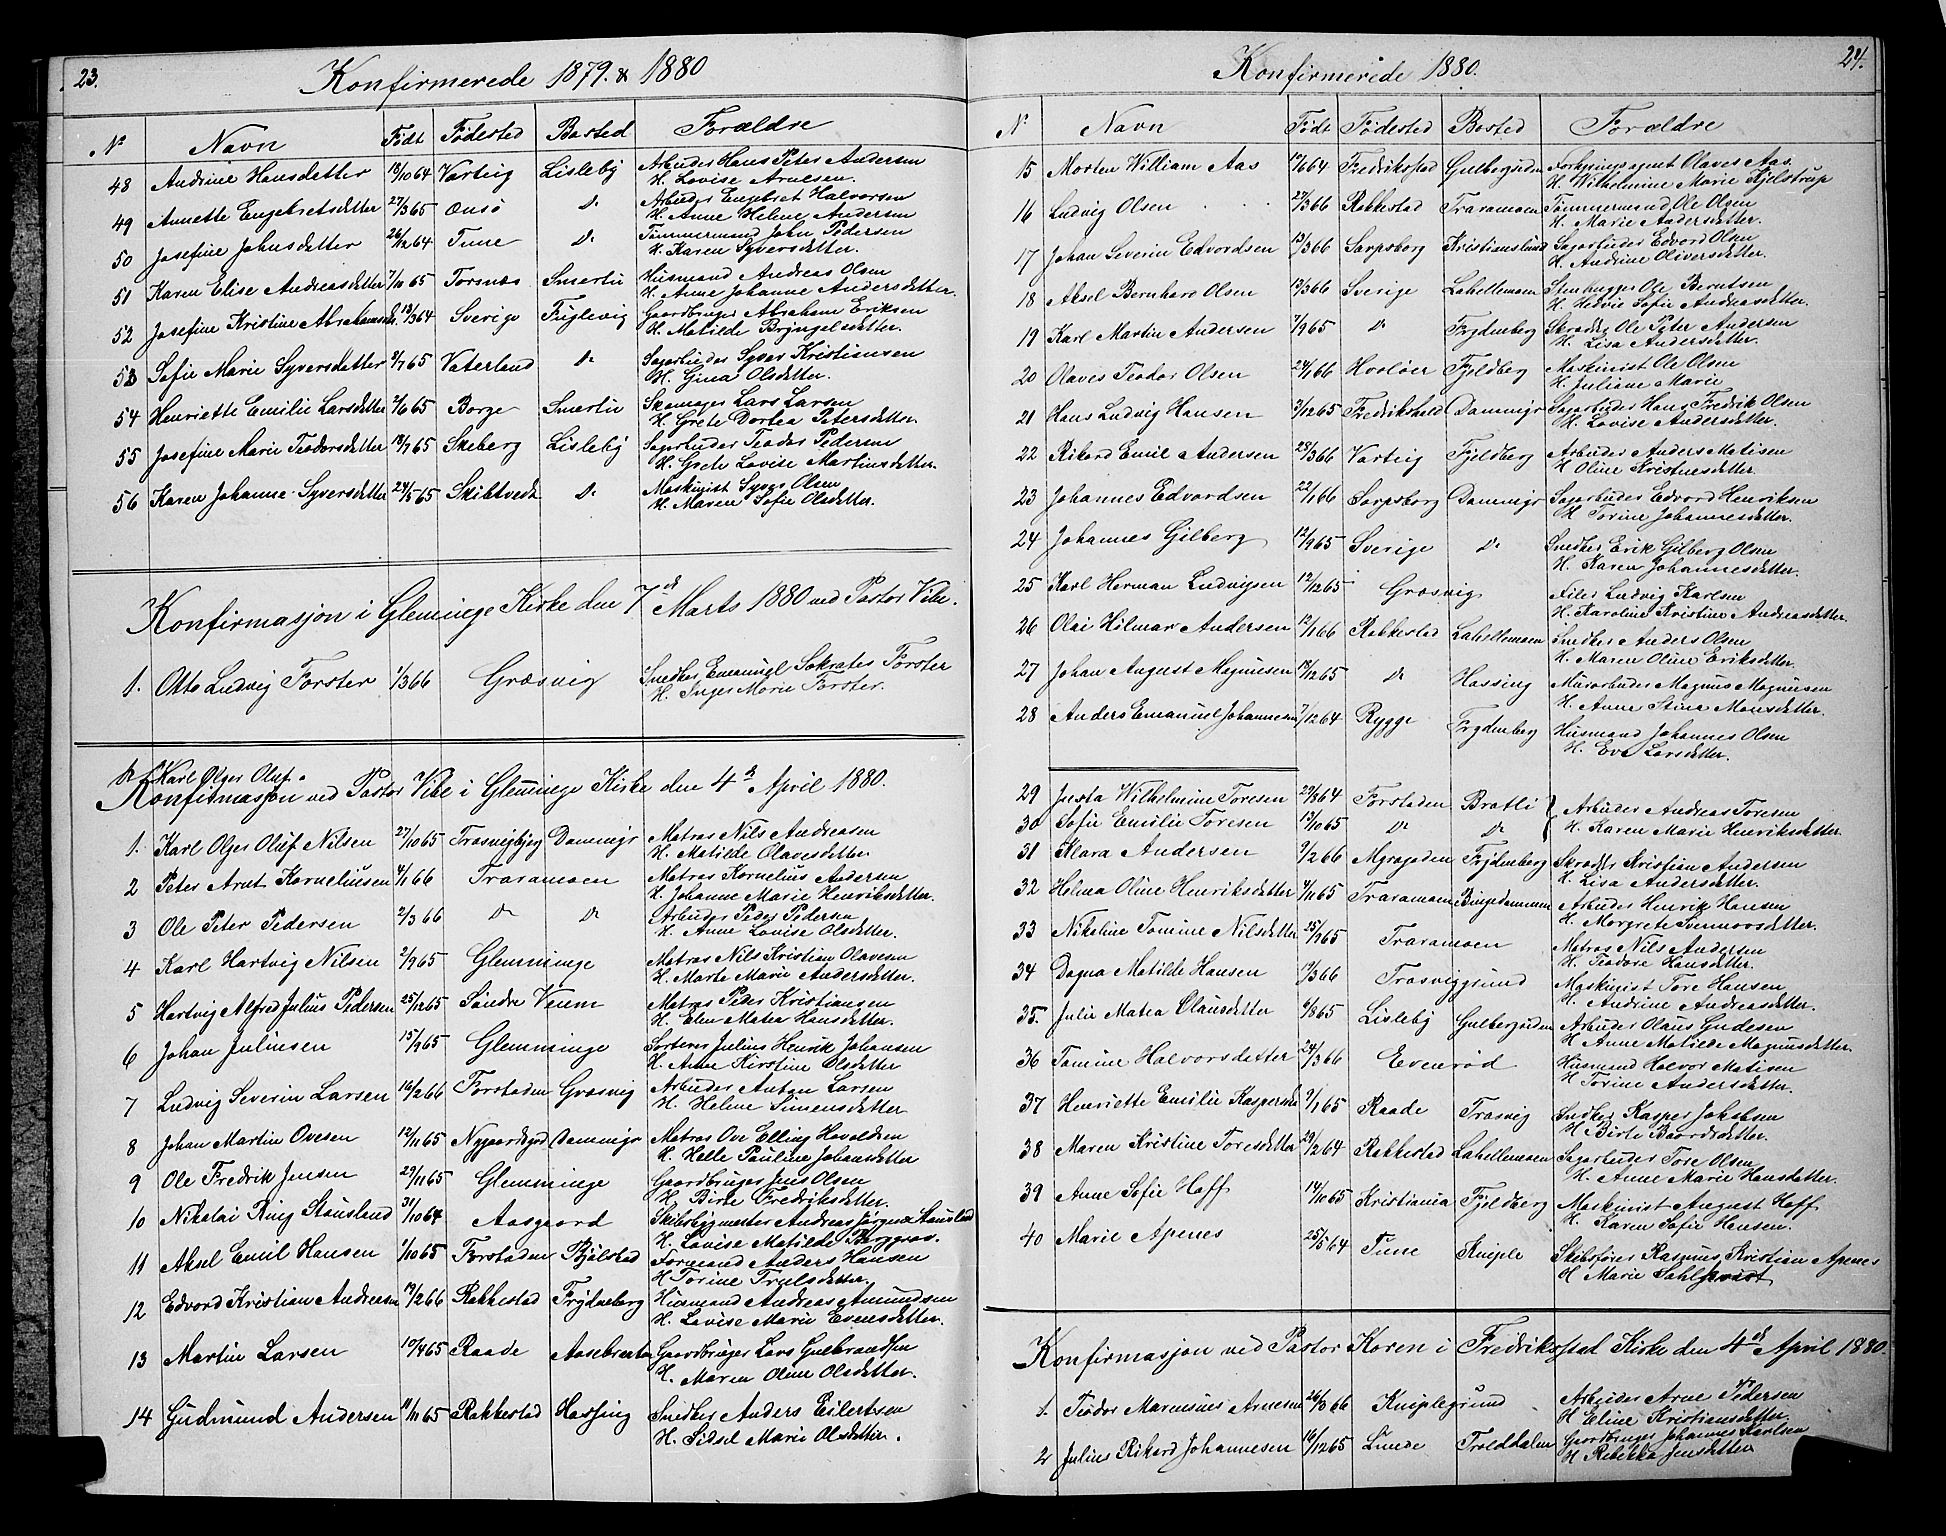 23.
Konfirmerede 1879. & 1880
No Navn Födt Födested Bosted Forældre
48 Andrine Hansdatter 13/10 64 Varteig Lisleby Arbeider Hans Peter Andersen
H. Lovise Arnesen.
49 Annette Engebretsdatter 27/3 65 Onsö Do Arbeider Engebret Halvorsen
H. Anne Helene Andersen
50 Josefine Johnsdatter 26/12 64 Tune Do Tömmermand John Pedersen
H. Karen Syversdatter.
51 Karen Elise Andreasdatter 7/10 65 Torsnæs Smertu Husmand Andreas Olsen
H. Anne Johanne Andersdatter.
52 Josefine Kristine Abrahamsdt. 13/3 64 Sverige Fuglevig Gaardbruger Abraham Eriksen
H. Matilde Bryngelsdatter.
53 Sofie Marie Syversdatter 2/7 65 Vaterland Do Sagarbeider Syver Kristiansen
H. Gina Olsdatter.
54 Henriette Emilie Larsdatter 2/6 65 Borge Smertu Skomager Lars Larsen
H. Grete Dortea Petersdatter.
55 Josefine Marie Teodorsdatter 18/7 65 Skeberg Lisleby Sagarbeider Teodor Pedersen
H. Grete Lovise Martinsdatter.
56 Karen Johanne Syversdatter 24/5 65 Skibtvedt Do Maskinist Syver Olsen
H. Maren Sofie Olsdatter.
Konfirmasjon i Glemminge Kirke den 7de Marts 1880 ved Pastor Vibe.
1. Otto Ludvig Forster 1/3 66 Græsvig Snedker Emanuel Sokrates Forster
H. Inger Marie Forster.
Karl Olger Oluf
Konfirmasjon ved Pastor Vibe i Glemminge Kirke den 4de April 1880.
1. Karl Olger Oluf Nilsen 27/10 65 Trosvigbjerg Dammyr Matros Nils Andreasen
H. Matilde Olavesdatter.
2 Peter Arnt Korneliusen 4/1 66 Traramoen Matros Kornelius Andersen
H. Johanne Marie Henriksdatter.
3 Ole Peter Pedersen 2/3 66 Do Do Arbeider Peder Pedersen
H. Anne Lovise Olsdatter.
4 Karl Hartvig Nilsen 2/9 65 Glemminge Matros Nils Kristian Olavesen
H. Marte Marie Andersdatter.
5 Hartvig Alfred Julius Pedersen 25/12 65 Söndre Veum Matros Peder Kristiansen
H. Elen Matea Hansdatter.
6 Johan Juliusen 15/9 65 Glemminge Sorterer Julius Henrik Johansen
H. Anne Kirstine Olsdatter
7 Ludvig Severin Larsen 16/2 66 Forstaden Græsvig Arbeider Anton Larsen
H. Helene Simensdatter
8 Johan Martin Ovesen 12/11 65 Nygaardsgd Dammyr Matros Ove Elling Hovelsen
H. Helle Pauline Johansdatter
9 Ole Fredrik Jensen 29/11 65 Glemminge Gaardbruger Jens Olsen
H. Birte Fredriksdatter.
10 Nikolai Ring Stousland 31/10 64 Aasgaard Skibsbygmester Andreas Jörgen Stousland
H. Lovise Matilde Borggrav.
11 Aksel Emil Hansen 1/10 65 Forstaden Bjölstad Formand Anders Hansen
H. Torine Trulsdatter
12 Edvard Kristian Andreasen 19/2 66 Rakkestad Frydenberg Husmand Andreas Amundsen
H. Lovise Marie Evensdatter.
13 Martin Larsen 10/4 65 Raade Aasebraaten Gaardbruger Lars Gulbrandsen
H. Maren Oline Olsdatter.
14 Gudmund Andersen 11/11 65 Rakkestad Hassing Snedker Anders Eilertsen
H. Sidsel Marie Olsdatter.
24.
Konfirmerede 1880.
No Navn Födt Födested Bosted Forældre
15 Morten William Aas 17/6 64 Fredrikstad Gulbergsiden Forhyringsagent Olaves Aas
H. Wilhelmine Marie Kjelstrup
16 Ludvig Olsen 27/3 66 Rakkestad Traramoen Tömmermand Ole Olsen
H. Marie Andersdatter.
17 Johan Severin Edvardsen 13/3 66 Sarpsborg Kristianslund Sagarbeider Edvard Olsen
H. Andrine Oliversdatter.
18 Aksel Bernhard Olsen 13/3 66 Sverige Lahellemoen Stenhugger Ole Berntsen
H. Hedvig Sofie Andreasdatter.
19 Karl Martin Andersen 7/9 65 Do Frydenberg Skrædder Ole Peter Andersen
H. Lisa Andersdatter.
20 Olaves Teodor Olsen 24/1 66 Hvalöer Fjeldberg Maskinist Ole Olsen
H. Juliane Marie
21 Hans Ludvig Hansen 7/12 65 Fredrikshald Dammyr Sagarbeider Hans Fredrik Olsen
H. Lovise Andersdatter.
22 Rikard Emil Andersen 28/3 66 Varteig Fjeldberg Arbeider Anders Matisen
H. Oline Kristiansdatter
23 Johannes Edvardsen 22/1 66 Sarpsborg Dammyr Sagarbeider Edvard Henriksen
H. Torine Johannesdatter.
24 Johannes Gilberg 12/9 65 Sverige Do Snedker Erik Gilberg Olsen
H. Karen Johannesdatter.
25 Karl Herman Ludvigsen 12/12 65 Græsvig Filer Ludvig Karlsen
H. Karoline Kristine Andreasdatter.
26 Olai Hilmar Andersen 12/1 66 Rakkestad Lahellemoen Snedker Anders Olsen
H. Maren Oline Eriksdatter.
27 Johan August Magnusen 18/12 65 Do Hassing Murarbeider Magnus Magnusen
H. Anne Stina Monsdatter.
28 Anders Emanuel Johannesen 7/12 64 Rygge Frydenberg Husmand Johannes Olsen
H. Eva Larsdatter.
29 Justa Wilhelmine Toresen 29/3 64 Forstaden Bratli Arbeider Andreas Toresen
30 Sofie Emilie Toresen 13/10 65 Do Do H. Karen Marie Henriksdatter.
31 Klara Andersen 9/2 66 Myragaden Frydenberg Skrædder Kristian Andersen
H. Lisa Andersdatter.
32 Helma Oline Henriksdatter 4/11 65 Traramoen Bingedammen Arbeider Henrik Hansen
H. Margrete Svennorsdatter.
33 Nikoline Tomine Nilsdatter 25/9 65 Traramoen Matros Nils Andersen
H. Teodore Hansdatter.
34 Dagna Matilde Hansen 19/3 66 Trosviggrund Maskinist Tore Hansen
H. Andrine Andreasdatter.
35. Julie Matea Olausdatter 4/8 65 Lisleby Gulbergsiden Arbeider Olaus Gudesen
H. Anne Matilde Magnusdatter.
36 Tomine Halvorsdatter 24/3 66 Evenröd Husmand Halvor Matisen
H. Torine Andersdatter.
37 Henriette Emilie Kaspersen 9/1 65 Raade Trosvig Snedker Kasper Jakobsen
H. Birte Baardsdatter.
38 Maren Kristine Toresdatter 29/2 64 Rakkestad Lahellemoen Sagarbeider Tore Olsen
H. Anne Marie Hansdatter.
39 Anne Sofie Hoff 14/10 65 Kristiania Fjeldberg Maskinist August Hoff
H. Karen Sofie Hansen.
40 Marie Apenes 25/5 64 Tune Kniple Skibsförer Rasmus Kristian Apenes
H. Marie Sahlqvist
Konfirmasjon ved Pastor Koren i Fredrikstad Kirke den 4de April 1880.
1. Teodor Marensius Arnesen 26/3 66 Kniplegrund Arbeider Arne Pedersen
H. Eline Kristiansdatter
2 Julius Rikard Johannesen 16/12 65 Lunde Trolddalen Gaardbruger Johannes Karlsen
H. Rebekka Jensdatter